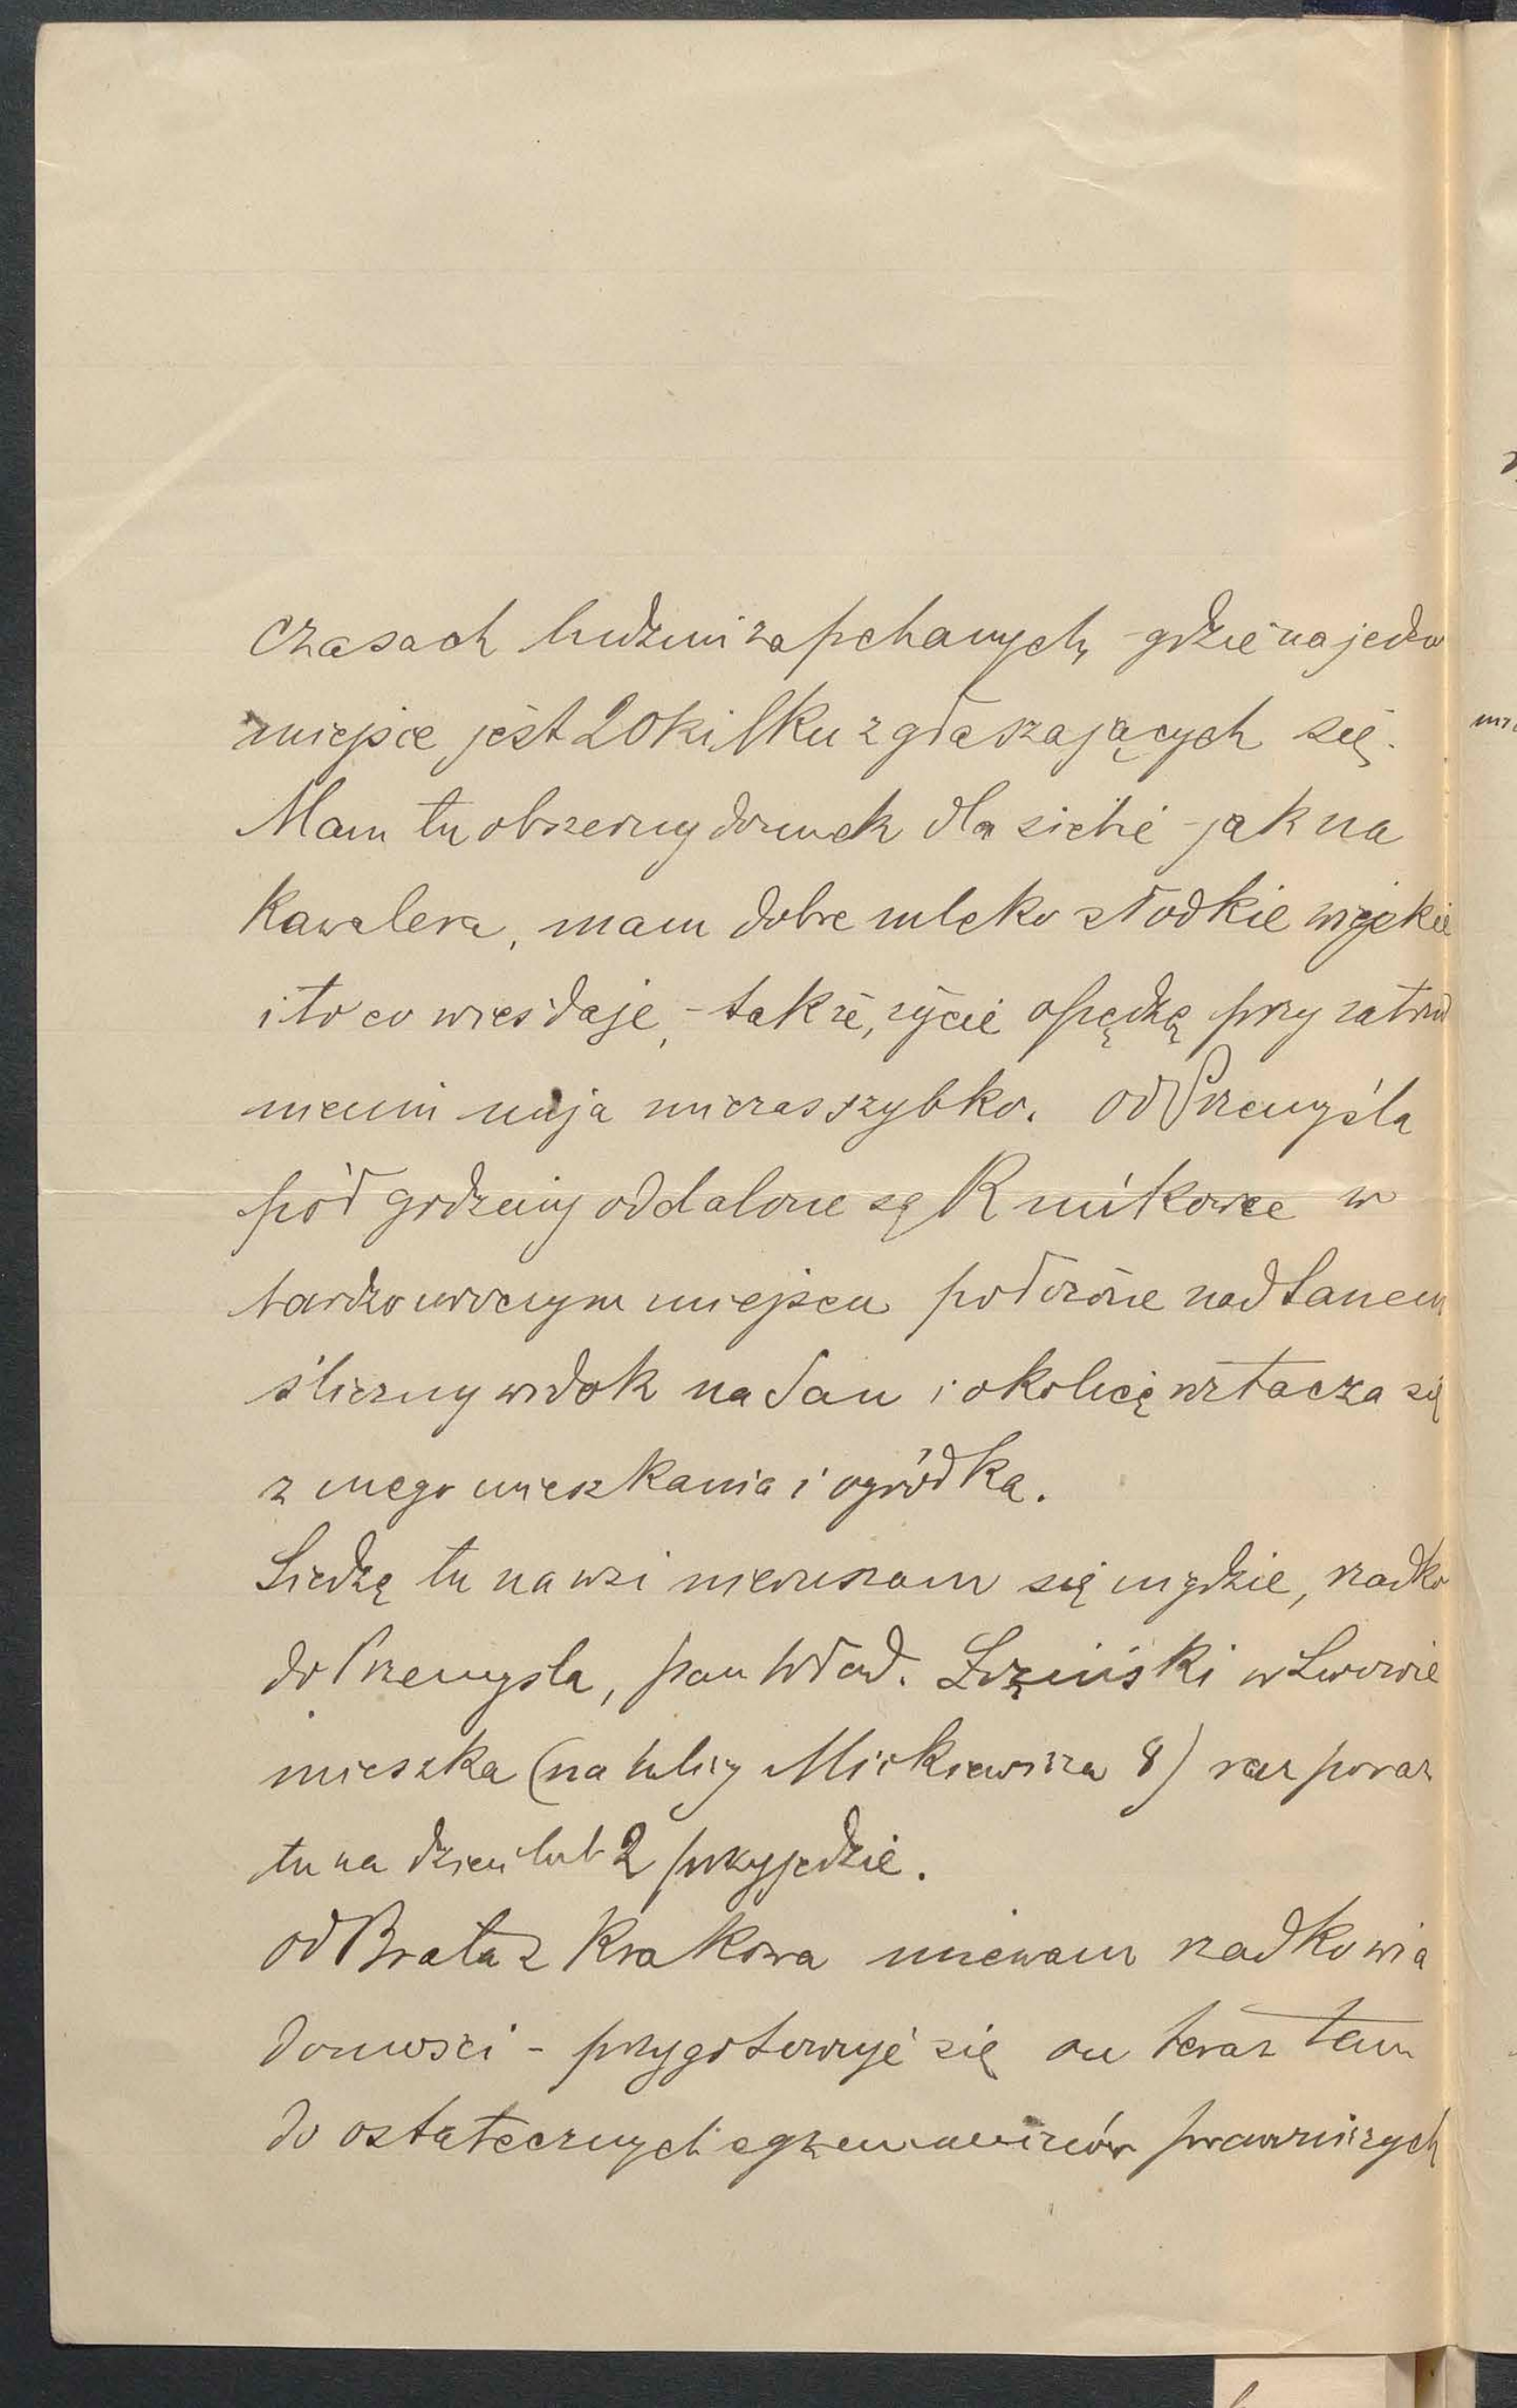 czasach ludźmi zapchanych, gdzie na jedno
miejsce jest 20 kilku zgłaszających się.
Mam tu obszerny domek dla siebie – jak na
Kawalera, mam dobre mleko słodkie wiejskie
i to co wieś daje, – także, życie opędzę przy zatrud
nieniu mija mi czas szybko. od Przemyśla
pół godziny oddalone są Kuńkowce w
bardzo uroczym miejscu położone nad Sanem
śliczny widok na San i okolicę roztacza się
z mego mieszkania i ogródka.
Siedzę tu na wsi nieruszam się nigdzie, rzadko
do Przemyśla, pan Wład. Łoziński w Lwowie
mieszka (na ulicy Mickiewicza 8) raz poraz
tu na dzień lub 2 przyjedzie.
od Brata z Krakowa miewam rzadko wia
domości – przygotowuje się on teraz tam
do ostatecznych egzaminów prawniczych